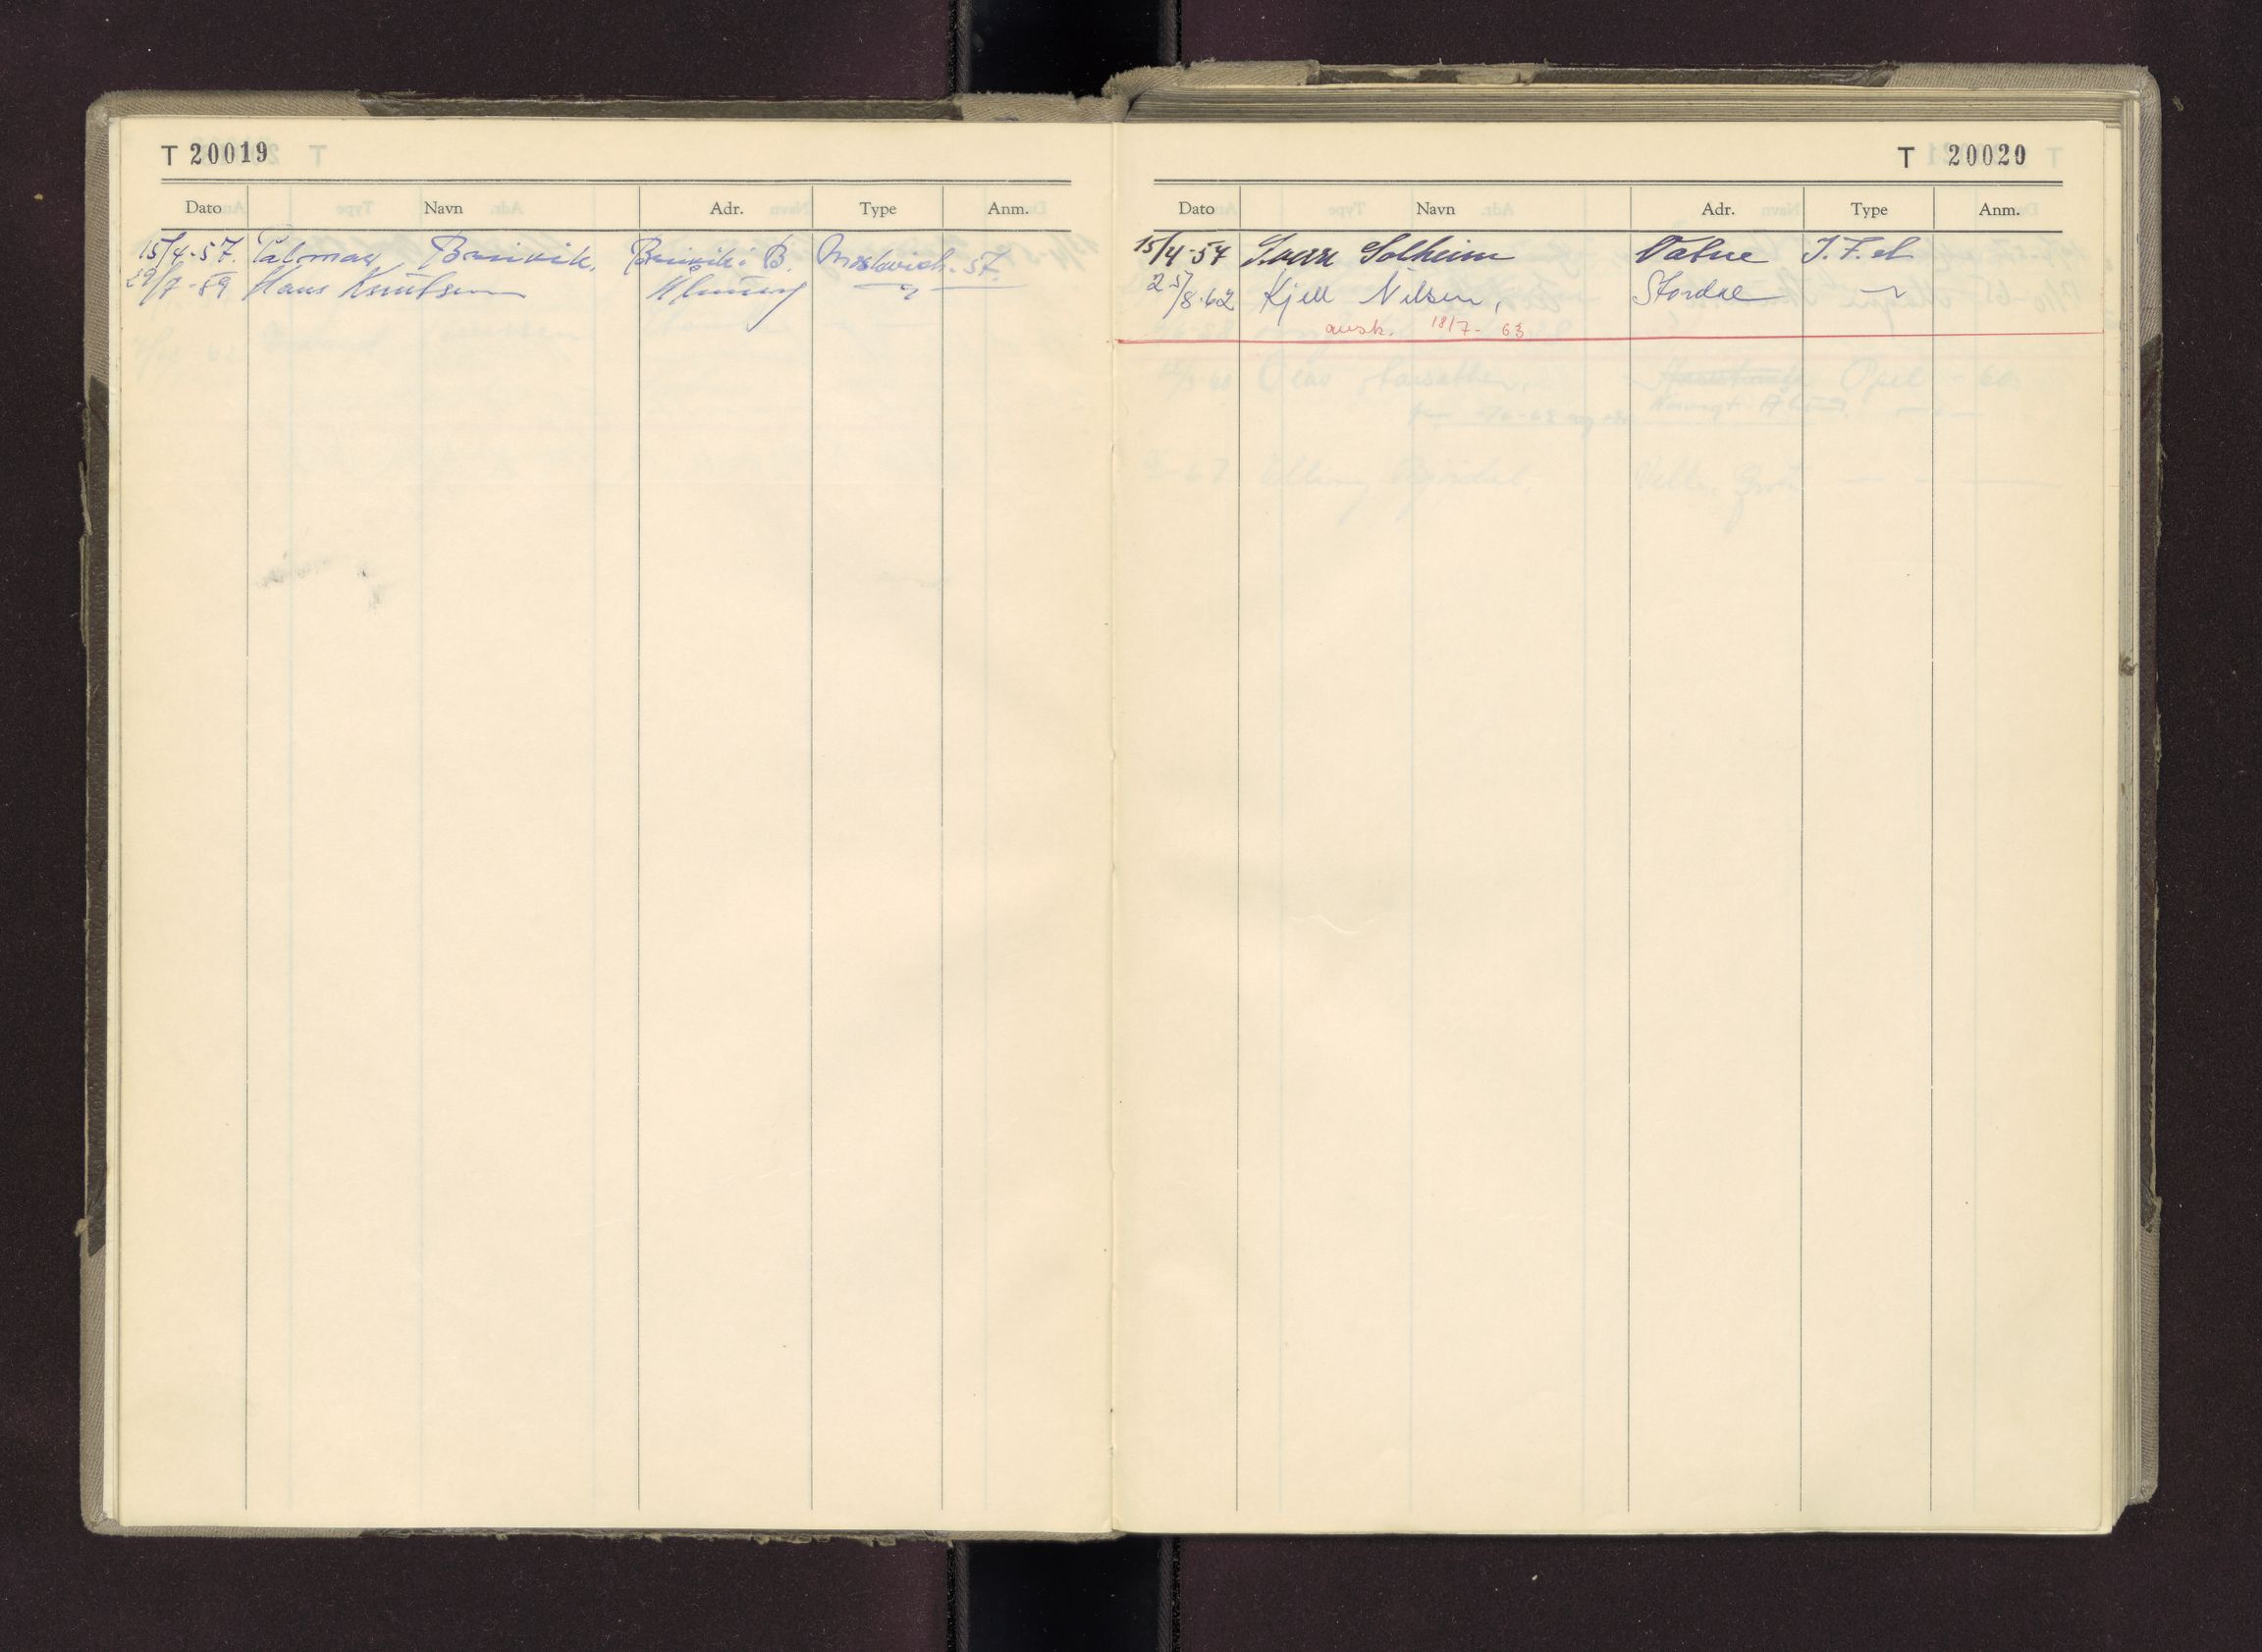 T 20019
Dato Navn Adr. Type Anm.
15/4-57. Palmar Breivik, Breivik i B. Moskvich - 57.
29/7-59 Hans Knutsen
T 20020
Dato Navn Adr. Type Anm.
15/4-57 Sverre Solheim Vatne
25/8-62 Kjell Nilsen, Stordal
avsk. 18/7-63